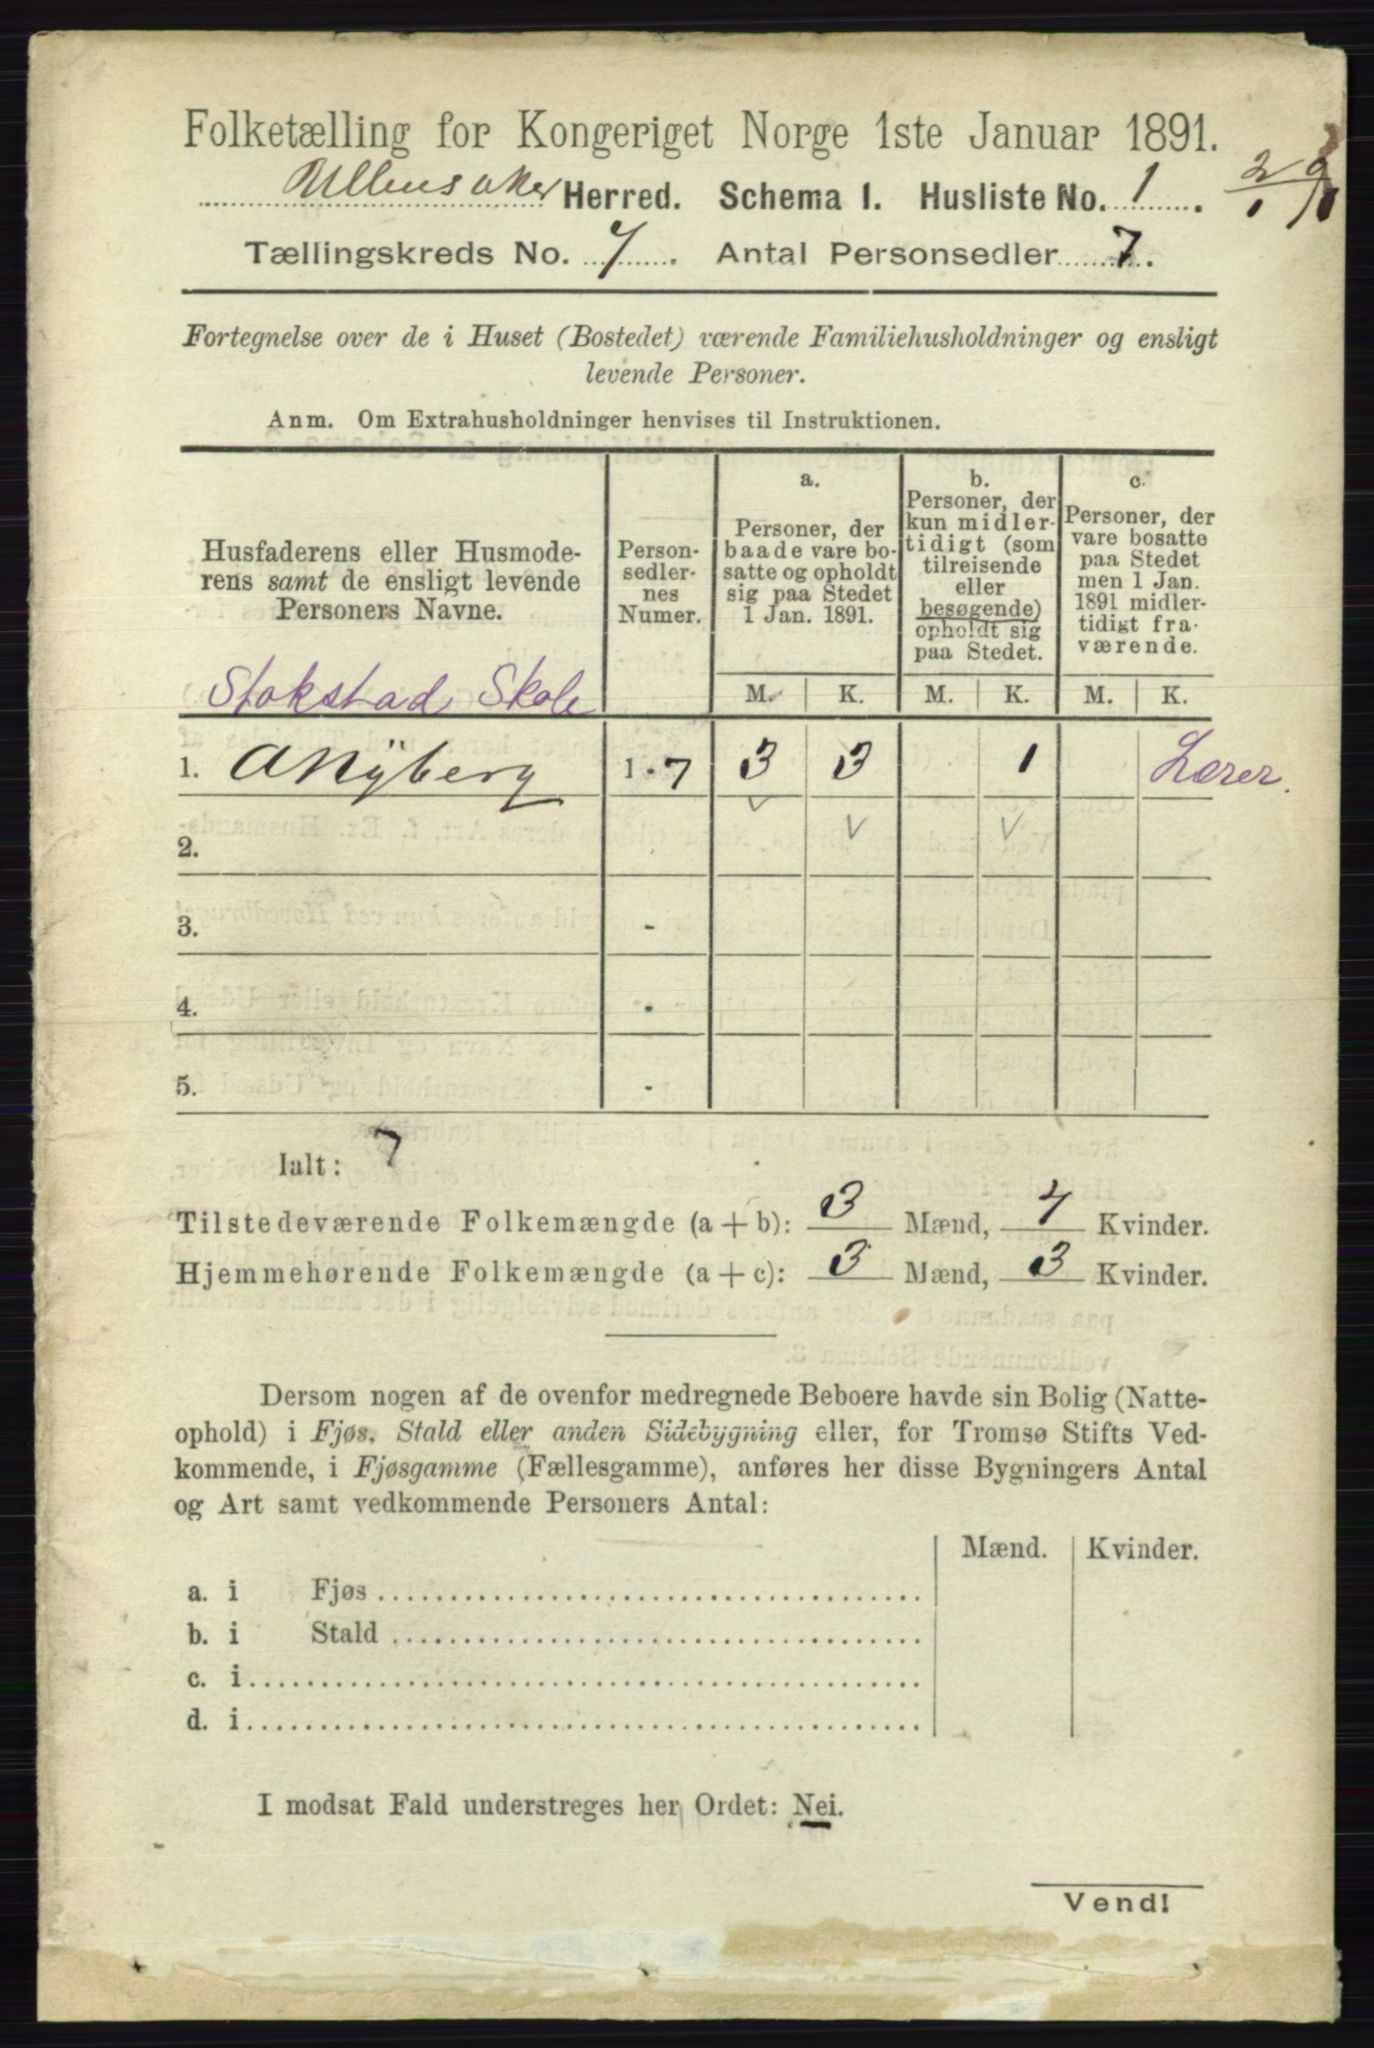 Folketælling for Kongeriget Norge 1ste Januar 1891.
Ullensaker Herred. Schema I. Husliste No. 1.
2/1 91
Tællingskreds No. 7. Antal Personsedler 7.
Fortegnelse over de i Huset (Bostedet) værende Familiehusholdninger og ensligt
levende Personer.
Anm. Om Extrahusholdninger henvises til Instruktionen.
Husfaderens eller Husmode-
rens samt de ensligt levende
Personers Navne.
Person-
sedler-
nes
Numer.
a.
Personer, der
baade vare bo-
satte og opholdt
sig paa Stedet
1 Jan. 1891.
b.
Personer, der
kun midler-
tidigt (som
tilreisende
eller
besøgende)
opholdt sig
paa Stedet.
c.
Personer, der
vare bosatte
paa Stedet
men 1 Jan.
1891 midler-
tidigt fra-
værende.
Stokstad Skole
M. K. M. K. M. K.
1. A Nÿberg 1 - 7 3 3 1 Lærer.
2.
3. -
4. -
5. -
Ialt: 7
Tilstedeværende Folkemængde (a + b): 3 Mænd, 4 Kvinder.
Hjemmehørende Folkemængde (a + c): 3 Mænd, 3 Kvinder.
Dersom nogen af de ovenfor medregnede Beboere havde sin Bolig (Natte-
ophold) i Fjøs, Stald eller anden Sidebygning eller, for Tromsø Stifts Ved-
kommende, i Fjøsgamme (Fællesgamme), anføres her disse Bygningers Antal
og Art samt vedkommende Personers Antal:
Mænd. Kvinder.
a. i Fjøs
b. i Stald
c. i
d. i
I modsat Fald understreges her Ordet: Nei.
Vend!